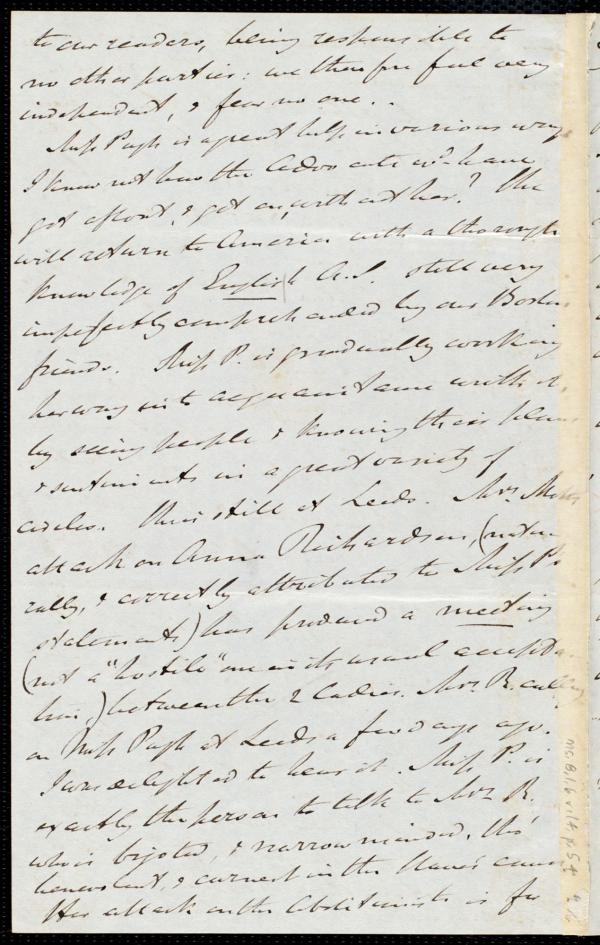 to our readers, being responsible to
no other parties: we therefore feel very
independent, & fear no one..
Miss Pugh is a great help in various ways
I know not how the Advocate wd. have
got afloat, & got on, without her? She
will return to America with a thorough
knowledge of English A.S. still very
imperfectly comprehended by our Boston
friends. Miss P. is gradually working
her way into acquaintance with it,
by seeing people & knowing their plans
& sentiments in a great variety of
circles. She is still at Leeds. Mrs. Mott's
attack on Anna Richardson, (natu-
rally, & correctly attributed to Miss P's
statements) has produced a meeting
(not a "hostile" one in its usual accepta-
tion,) between the 2 Ladies. Mrs. R. calling
on Miss Pugh at Leeds a few days ago.
I was delighted to hear it. Miss P. is
exactly the person to talk to Mrs. R.
who is bigoted, & narrow minded, tho'
benevolent, & earnest in the Slaves' cause
Her attack on the Abolitionists is far